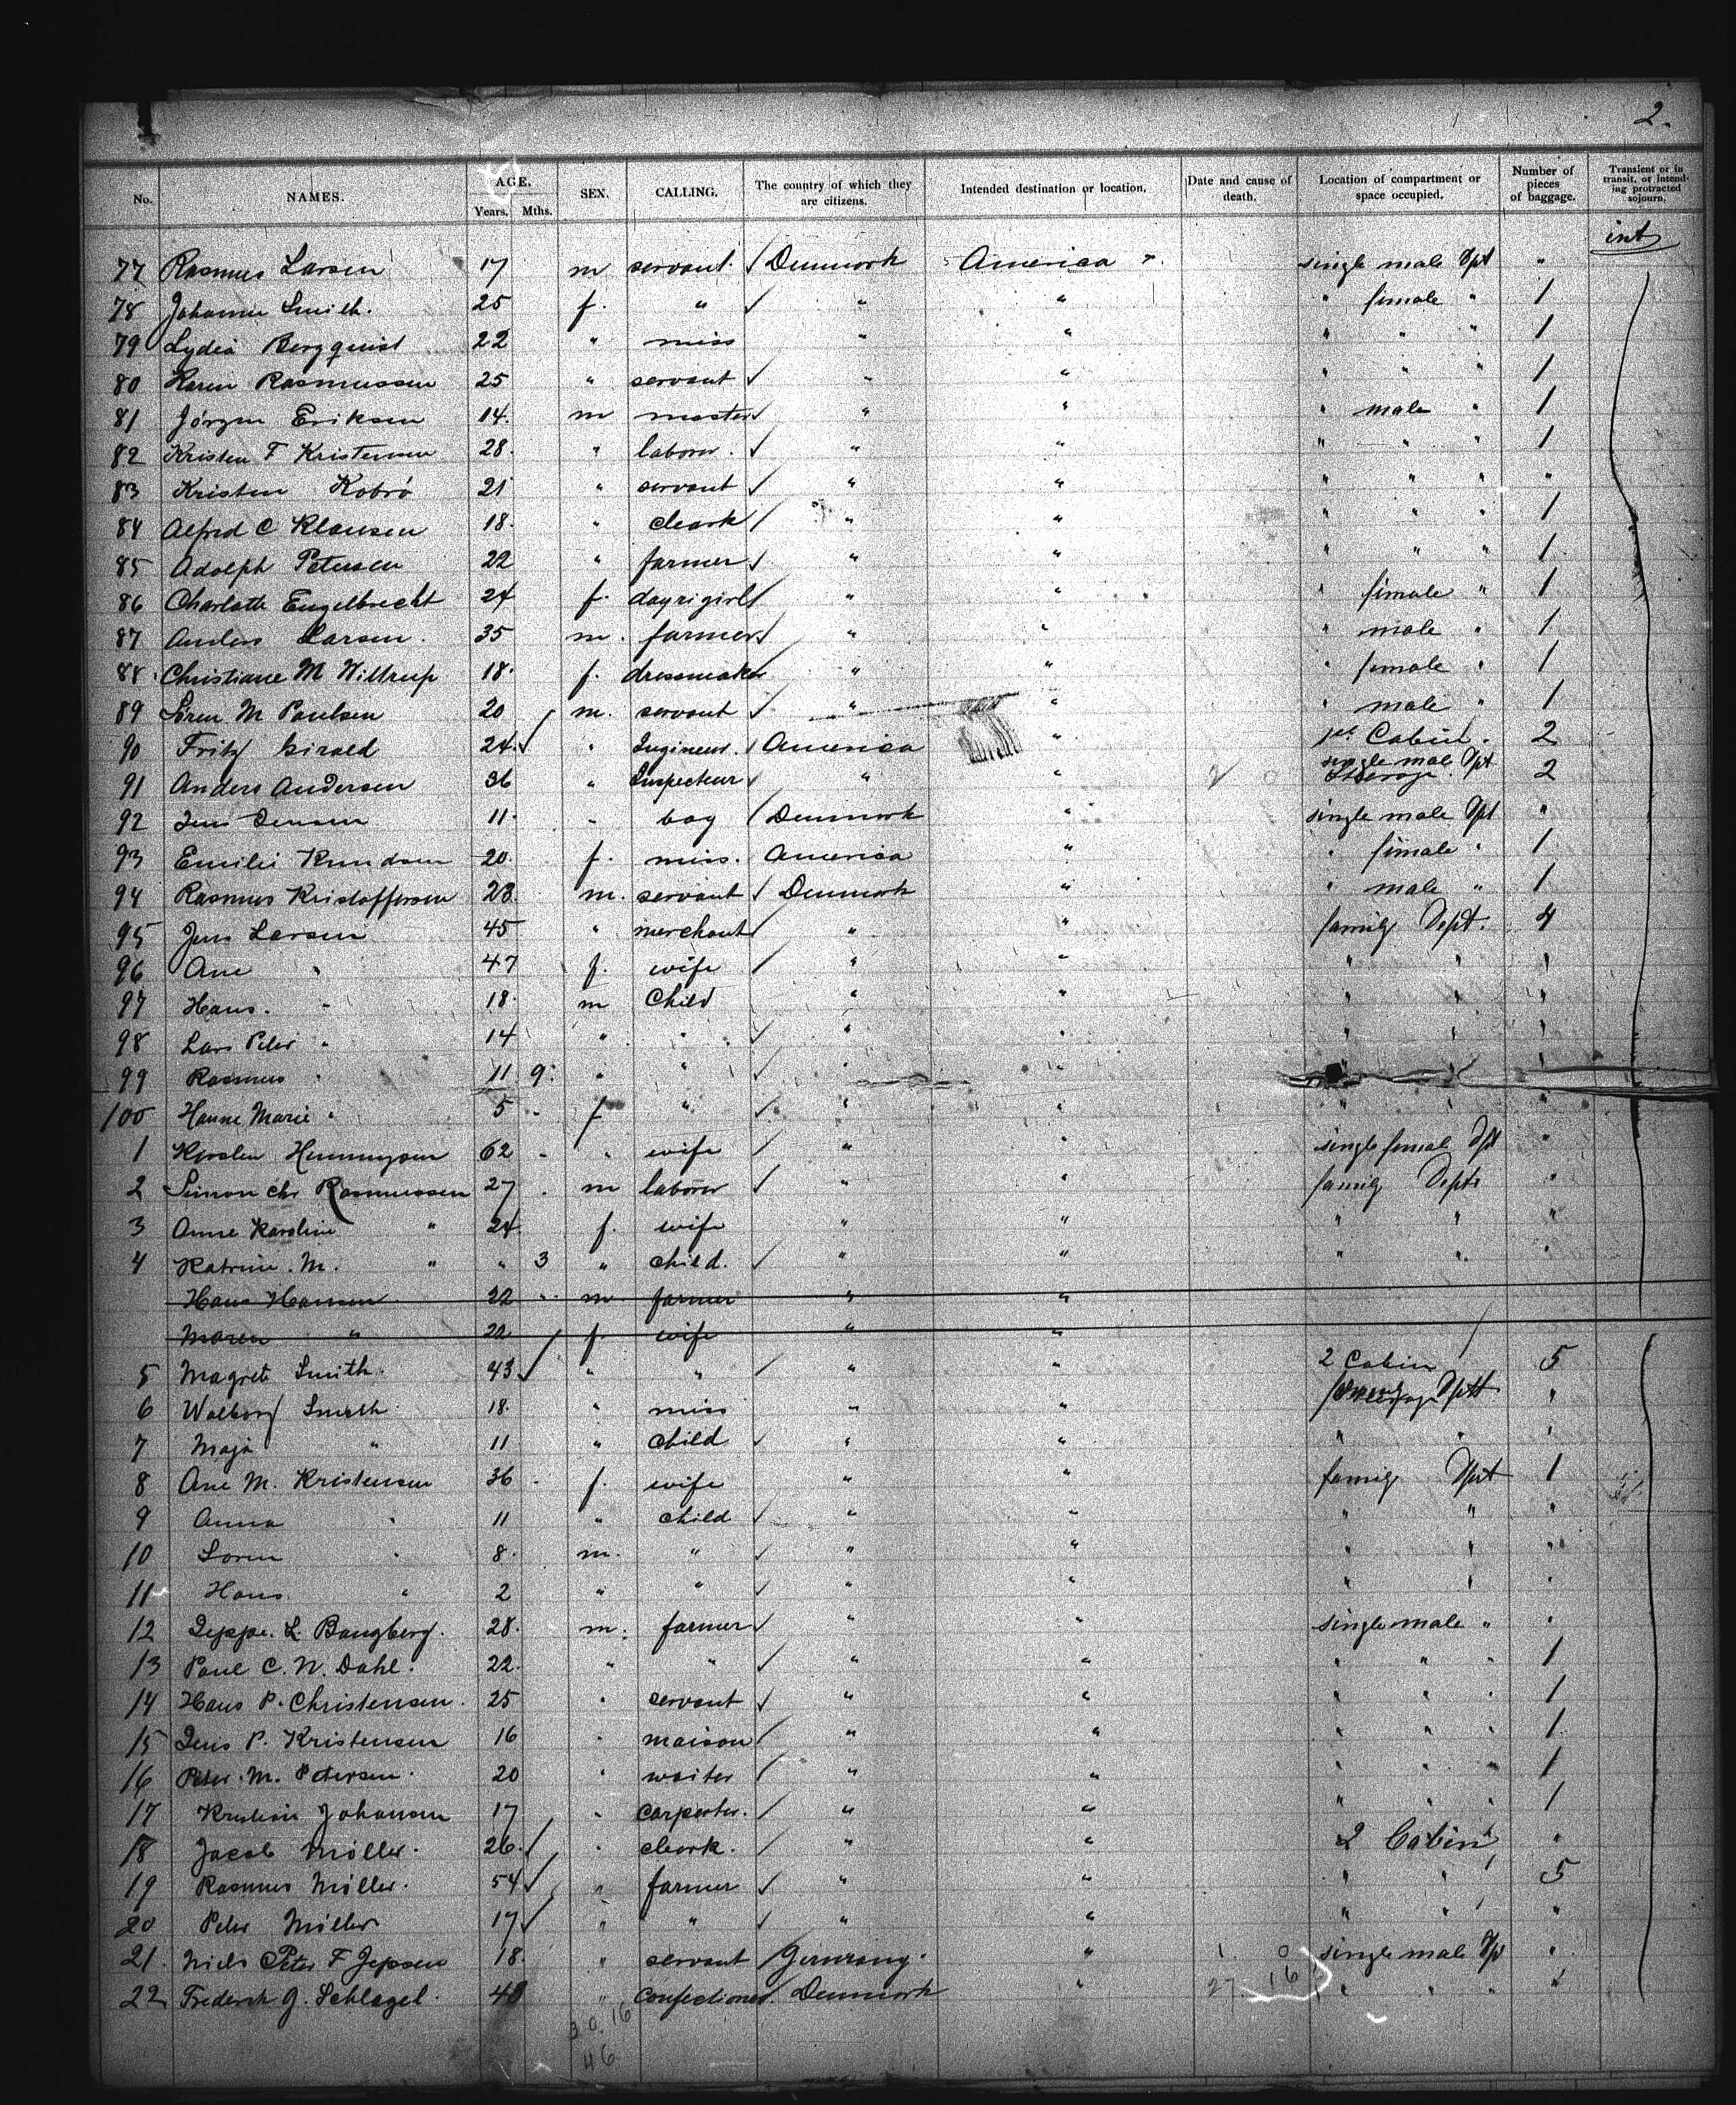 2.
No. NAMES. AGE. Years. Mths. SEX. CALLING. The country of which they are citizens. Intended destination or location. Date and cause of death. Location of compartment or space occupied. Number of pieces of baggage. Transient or in transit, or intending protracted sojourn.
int
77 Rasmus Larsen 17 m servant. Denmark America single male Dpt "
78 Johanne Smith. 25 f. " " " " female " 1
79 Lydia Bergquist 22 " miss " " " " " 1
80 Karen Rasmussen 25 " servant " " " " " 1
81 Jörgen Eriksen 14. m master " " " male " 1
82 Kristen F Kristensen 28. " laborer. " " " " " 1
83 Kristen Kobrö 21 " servant " " " " " "
84 Alfred C Klausen 18. " cleark " " " " " 1
85 Adolph Petersen 22 " farmer " " " " " 1
86 Charlotte Engelbrecht 24 f. dayrigirl " " " female " 1
87 Anders Larsen. 35 m. farmer " " " male " 1
88 Christiane M Wiltrup 18. f. dressmaker " " " female " 1
89 Sören M Paulsen 20 m. servant " " " male " 1
90 Fritz Girald 24. " Ingineur. America " 1st Cabin. 2
91 Anders Andersen 36 " Inspecteur " " single male Dpt 2
92 Jens Jensen 11. " boy Denmark " single male Dpt "
93 Emilie Knudsen 20. f. miss. America " " female " 1
94 Rasmus Kristoffersen 28. m. servant Denmark " " male " 1
95 Jens Larsen 45 " merchant " " family Dept. 4
96 Ane " 47 f. wife " " " " "
97 Hans. " 18. m Child " " " " "
98 Lars Peter " 14 " " " " " " "
99 Rasmus " 11 9. " " " " " " "
100 Hanne Marie " 5 " f " " " " " "
1 Kirsten Hemmingsen 62 " " wife " " single femal Dpt "
2 Simon chr Rasmussen 27 . m laborer " " family Dept. "
3 Anne Karoline " 24. f. wife " " " " "
4 Katrine. M. " " 3 " child. " " " " "
Hans Hansen 22 " m farmer " "
Maren " 22 f. wife " "
5 Magrete Smith. 43 " " " " 2 Cabin 5
6 Walborg Smith 18. " miss " " Dptt "
7 Maja " 11 " child " " " " "
8 Ane M. Kristensen 36 . f. wife " " family Dpt 1
9 Anna " 11 " child " " " " "
10 Soren " 8. m. " " " " " "
11 Hans " 2 " " " " " " "
12 Jeppe. L. Bangberg. 28. m. farmer " " single male " "
13 Paul C. N. Dahl. 22. " " " " " " " 1
14 Hans P. Christensen. 25 " servant " " " " " 1
15 Jens P. Kristensen 16 " maison " " " " " 1
16 Peter. M. Petersen. 20 " waiter " " " " " 1
17 Johansen 17 " carpenter. " " " " " 1
18 Jacob Möller. 26. " cleark. " " 2 Cabin "
19 Rasmus Möller. 54 " farmer " " " " 5
20 Peter Möller 17 " " " " " " "
21. Niels Peter F Jepsen 18. " servant Germany. " 1. 0 single male Dpt "
22 Frederik G. Schlagel. 48 " Confectioner. Denmark " 27 16 " " " "
3.0.16
46